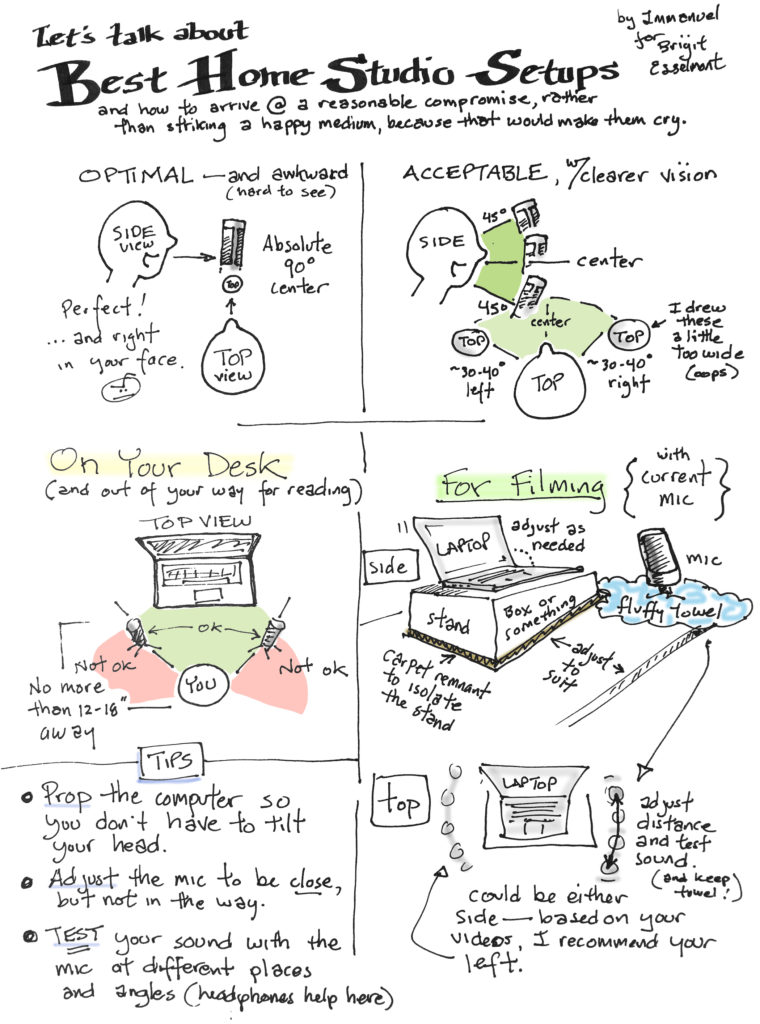 Let's talk about
Best Home Studio Setups
by Immanuel
for
Brigit
Esselmont
and how to arrive @ a reasonable compromise, rather
than striking a happy medium, because that would make them cry.
OPTIMAL — and awkward
(hard to see)
SIDE
VIEW
Absolute
90°
center
TOP
Perfect!
... and right
in your face.
TOP
view
ACCEPTABLE, w/clearer vision
SIDE
45°
center
45°
center
TOP
TOP
TOP
~30-40°
left
~30-40°
right
I drew
these
a little
too wide
(oops)
On Your Desk
(and out of your way for reading)
TOP VIEW
OK
Not ok
Not ok
YOU
No more
than 12-18"
away
For Filming
{with
current
mic}
side
LAPTOP
adjust as
needed
mic
stand
Box or
something
fluffy towel
carpet remnant
to isolate
the stand
adjust
to
suit
TIPS
• Prop the computer so
you don't have to tilt
your head.
• Adjust the mic to be close,
but not in the way.
• TEST your sound with the
mic at different places
and angles (headphones help here)
top
LAPTOP
adjust
distance
and test
sound.
(and keep
towel!)
could be either
side — based on your
videos, I recommend your
left.